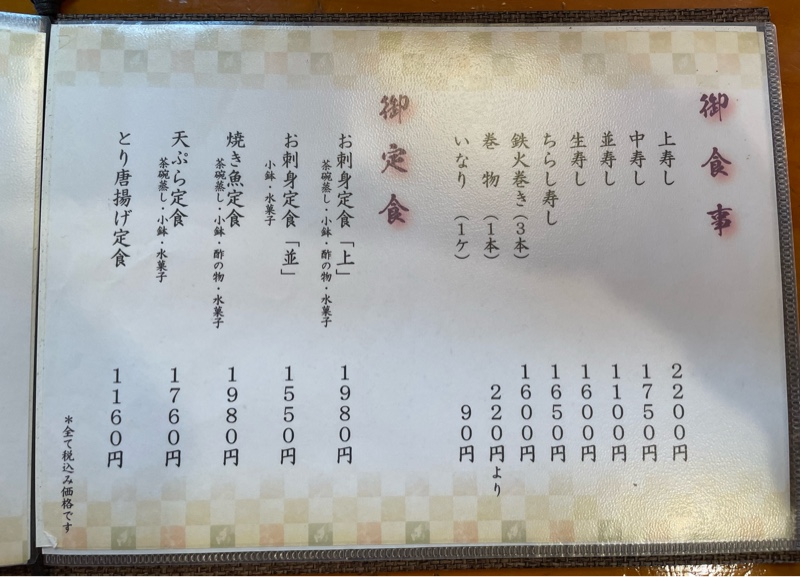 御食事
上寿し 2200円
中寿し 1750円
並寿し 1100円
生寿し 1600円
ちらし寿し 1650円
鉄火巻き(3本) 1600円
巻物(1本) 220円より
いなり(1ケ) 90円
御定食
お刺身定食「上」 1980円
茶碗蒸し・小鉢・酢の物・水菓子
お刺身定食「並」 1550円
小鉢・水菓子
焼き魚定食 1980円
茶碗蒸し・小鉢・酢の物・水菓子
天ぷら定食 1760円
茶碗蒸し・小鉢・水菓子
とり唐揚げ定食 1160円
*全て税込み価格です